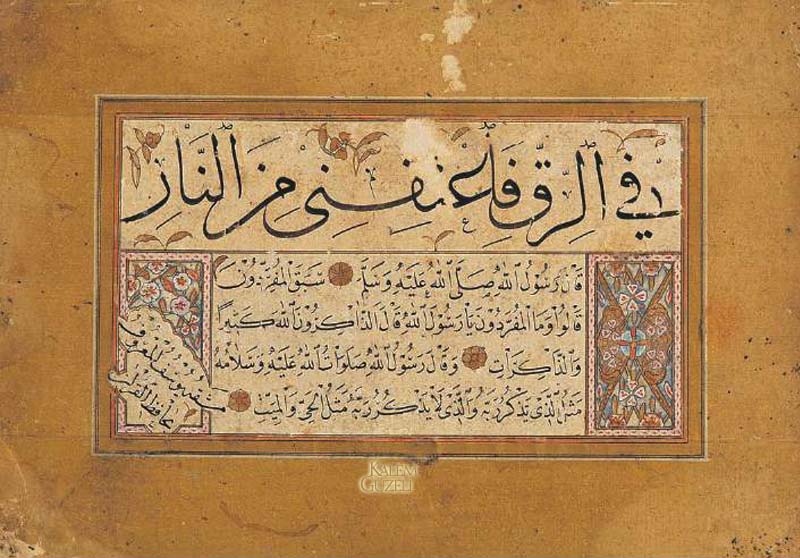 فِي الرِّقِّ فَاعْتِقْنِي مِنَ النَّارِ
قَالَ رَسُولُ اللهِ صَلَّى اللهُ عَلَيْهِ وَسَلَّمَ سَبَقَ الْمُفَرِّدُونَ
قَالُوا وَمَا الْمُفَرِّدُونَ يَا رَسُولَ اللهِ قَالَ الذَّاكِرُونَ اللهَ كَثِيرًا
وَالذَّاكِرَاتُ وَقَالَ رَسُولُ اللهِ صَلَوَاتُ اللهِ عَلَيْهِ وَسَلَامُهُ
مَثَلُ الَّذِي يَذْكُرُ رَبَّهُ وَالَّذِي لَا يَذْكُرُ رَبَّهُ مَثَلُ الْحَيِّ وَالْمَيِّتِ
يوسف المعروف
بحافظ القرآن
KALEM
GÜZELİ